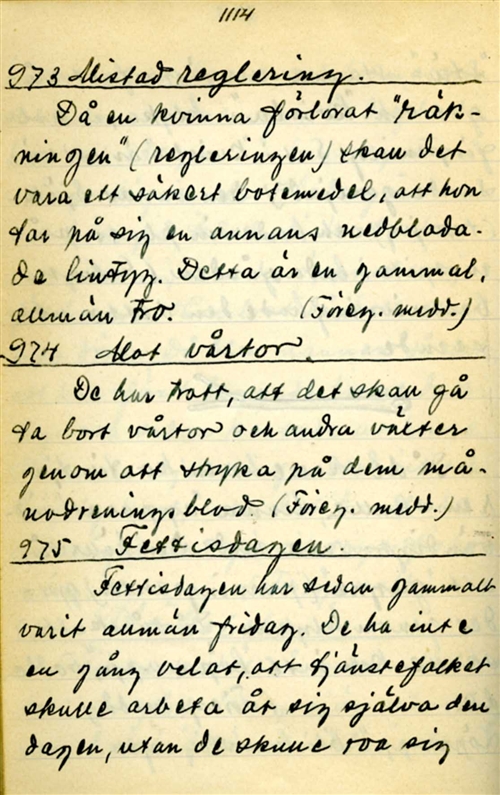 1114
973 Mistad reglering.
Då en kvinna förlorat "räk-
ningen" (regleringen) skall det
vara ett säkert botemedel, att hon
tar på sig en annans nedbloda-
de lintyg. Detta är en gammal,
allmän tro. (Föreg. medd.)
974 Mot vårtor.
De har trott, att det skall gå
ta bort vårtor och andra växter
genom att stryka på dem må-
nadreningsblod. (Föreg. medd.)
975 Fettisdagen.
Fettisdagen har sedan gammalt
varit allmän fridag. De ha inte
en gång velat, att tjänstefolket
skulle arbeta åt sig själva den
dagen, utan de skulle roa sig